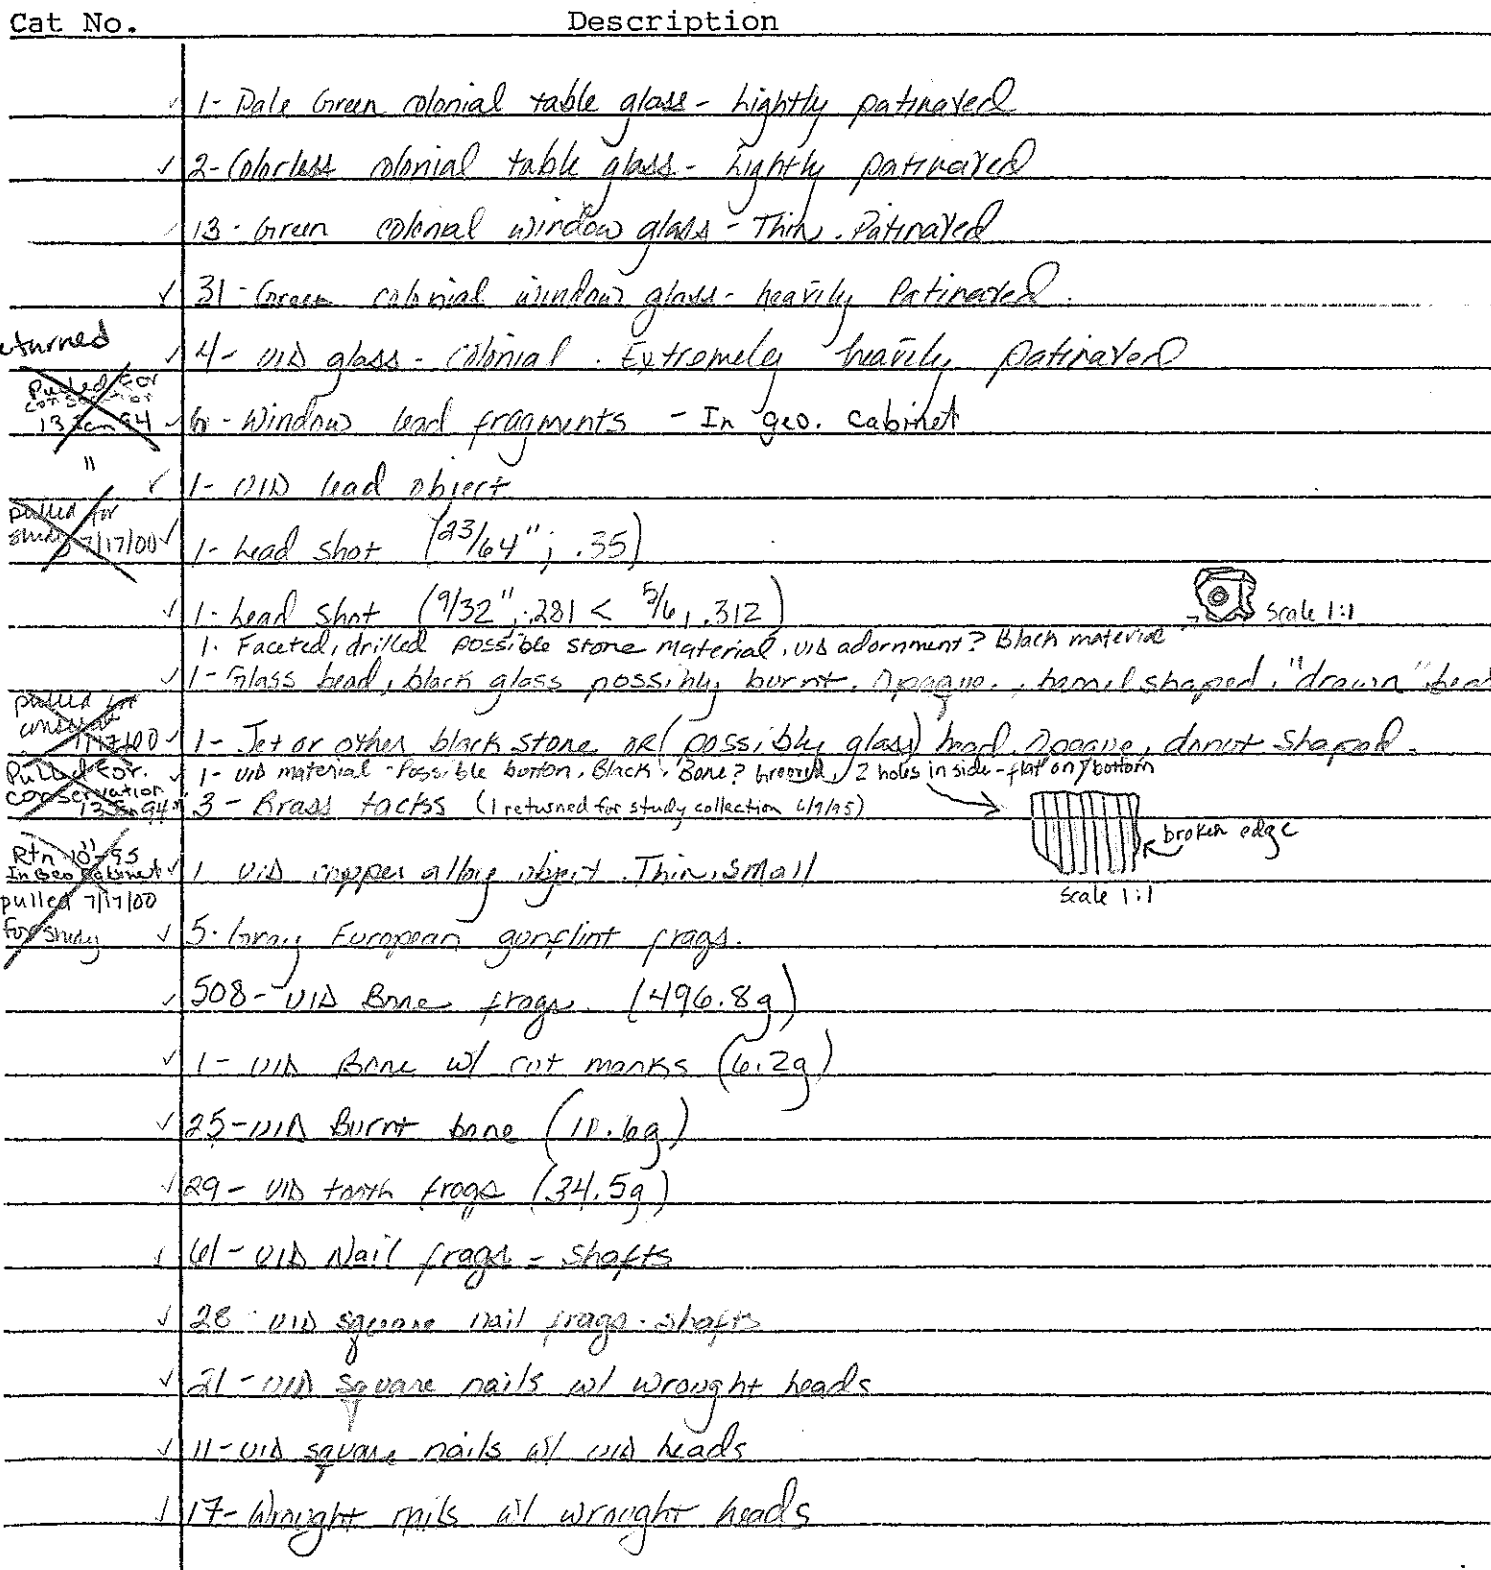 Cat No. Description
1- Pale Green colonial table glass - Lightly patinated
2- Colorless colonial table glass - Lightly patinated
13 - Green colonial window glass - Thin. Patinated
31 - Green colonial window glass - heavily Patinated.
eturned
4- UID glass - Colonial. Extremely heavily patinated
Pulled for
conservation
13 Jan 94
6 - Window lead fragments - In geo. cabinet
"
1- UID lead object
pulled for
study 7/17/00
1- Lead shot (23/64"; .35)
1- Lead shot (9/32", .281 < 5/16, .312)
scale 1:1
1. Faceted, drilled possible stone material, UID adornment? Black material
1- Glass bead, black glass possibly burnt. Opaque., barrel shaped, "drawn" bead
pulled for
7/17/00
1- Jet or other black stone OR (possibly glass) bead. Opaque, donut shaped.
Pulled for.
conservation
13 Jan 94
1- UID material - Possible button. Black. Bone? Grooved, 2 holes in side - flat on bottom
3 - Brass tacks (1 returned for study collection 6/9/95)
broken edge
scale 1:1
"
Rtn 10-95
In Geo Cabinet
1 UID copper alloy object. Thin, small
pulled 7/17/00
for study
5. Gray European gunflint frags.
508- UID Bone frags. (496.8g)
1- UID Bone w/ cut marks (6.2g)
25- UID Burnt bone (10.6g)
29- UID tooth frags (34.5g)
61- UID Nail frags - shafts
28 - UID square nail frags - shafts
21 - UID square nails w/ wrought heads
11- UID square nails w/ UID heads
17- Wrought nails w/ wrought heads